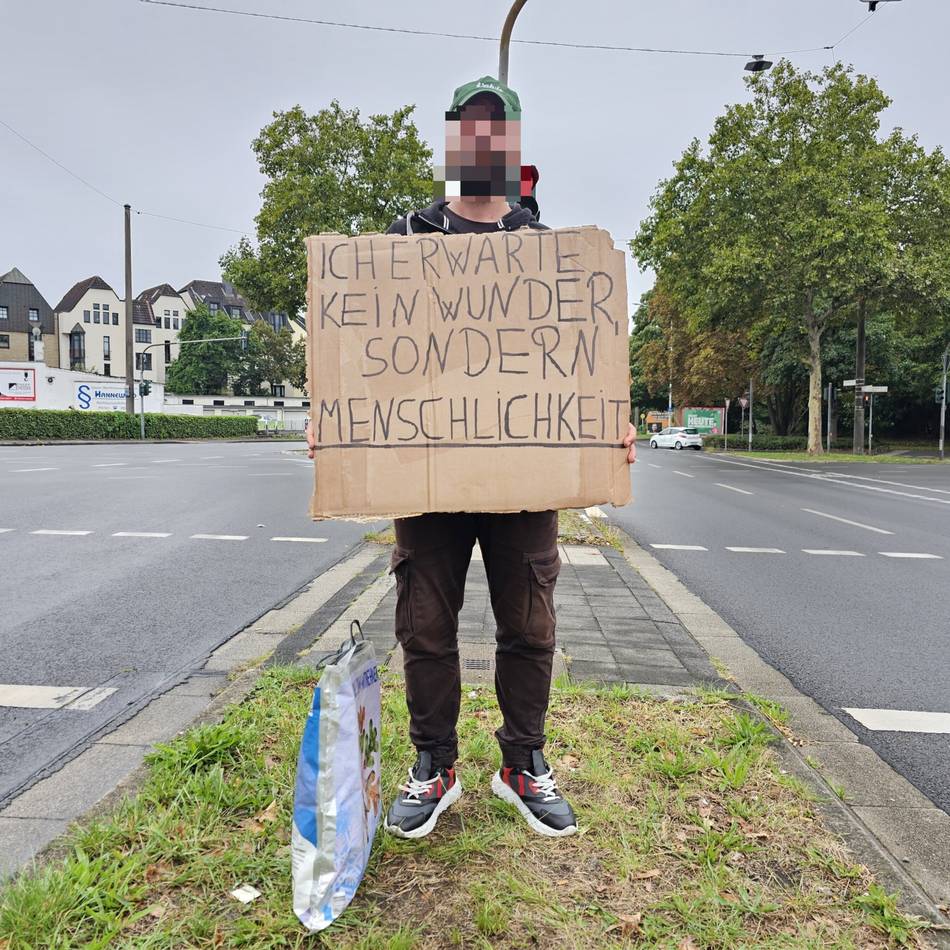 ICH ERWARTE
KEiN WUNDER,
SONDERN
MENSCHLiCHKEiT
§ HANNEW
HEUTE.